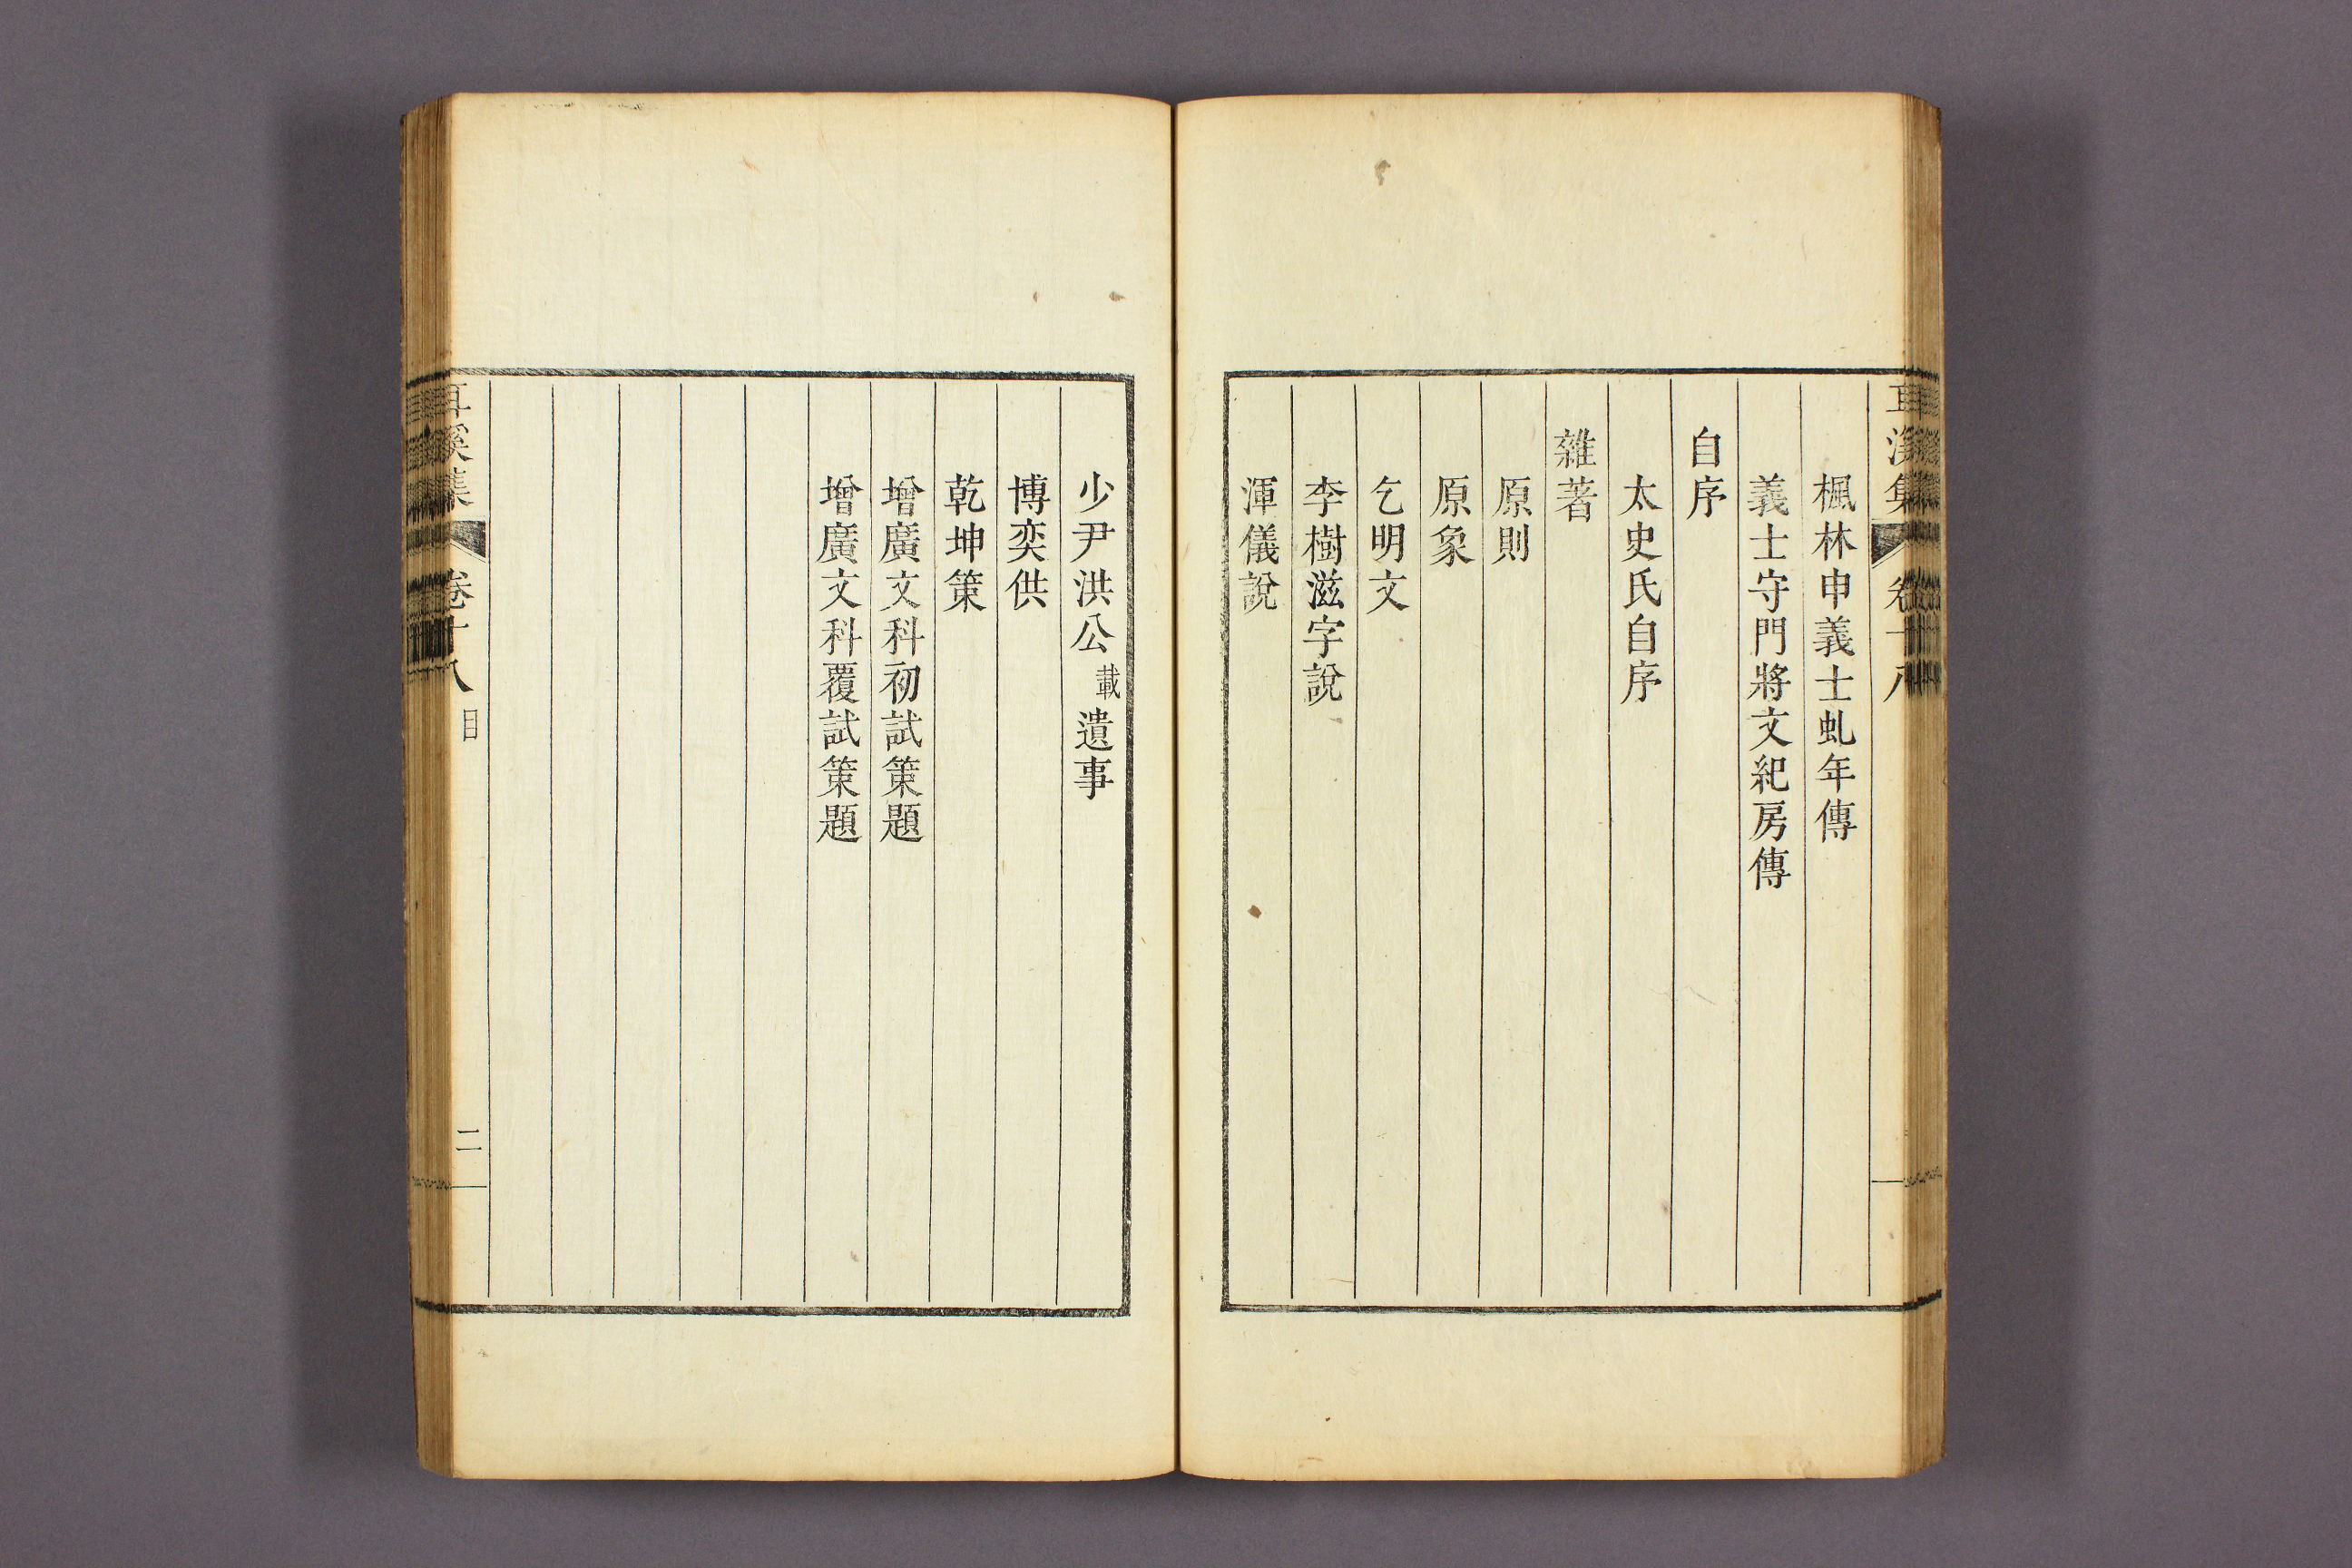 楓林申義士虬年傳
義士守門將文紀房傳
自序
太史氏自序
雜著
原則
原象
乞明文
李樹滋字說
渾儀說
少尹洪公載遺事
博奕供
乾坤策
增廣文科初試策題
增廣文科覆試策題
耳溪集 卷十八 目 二